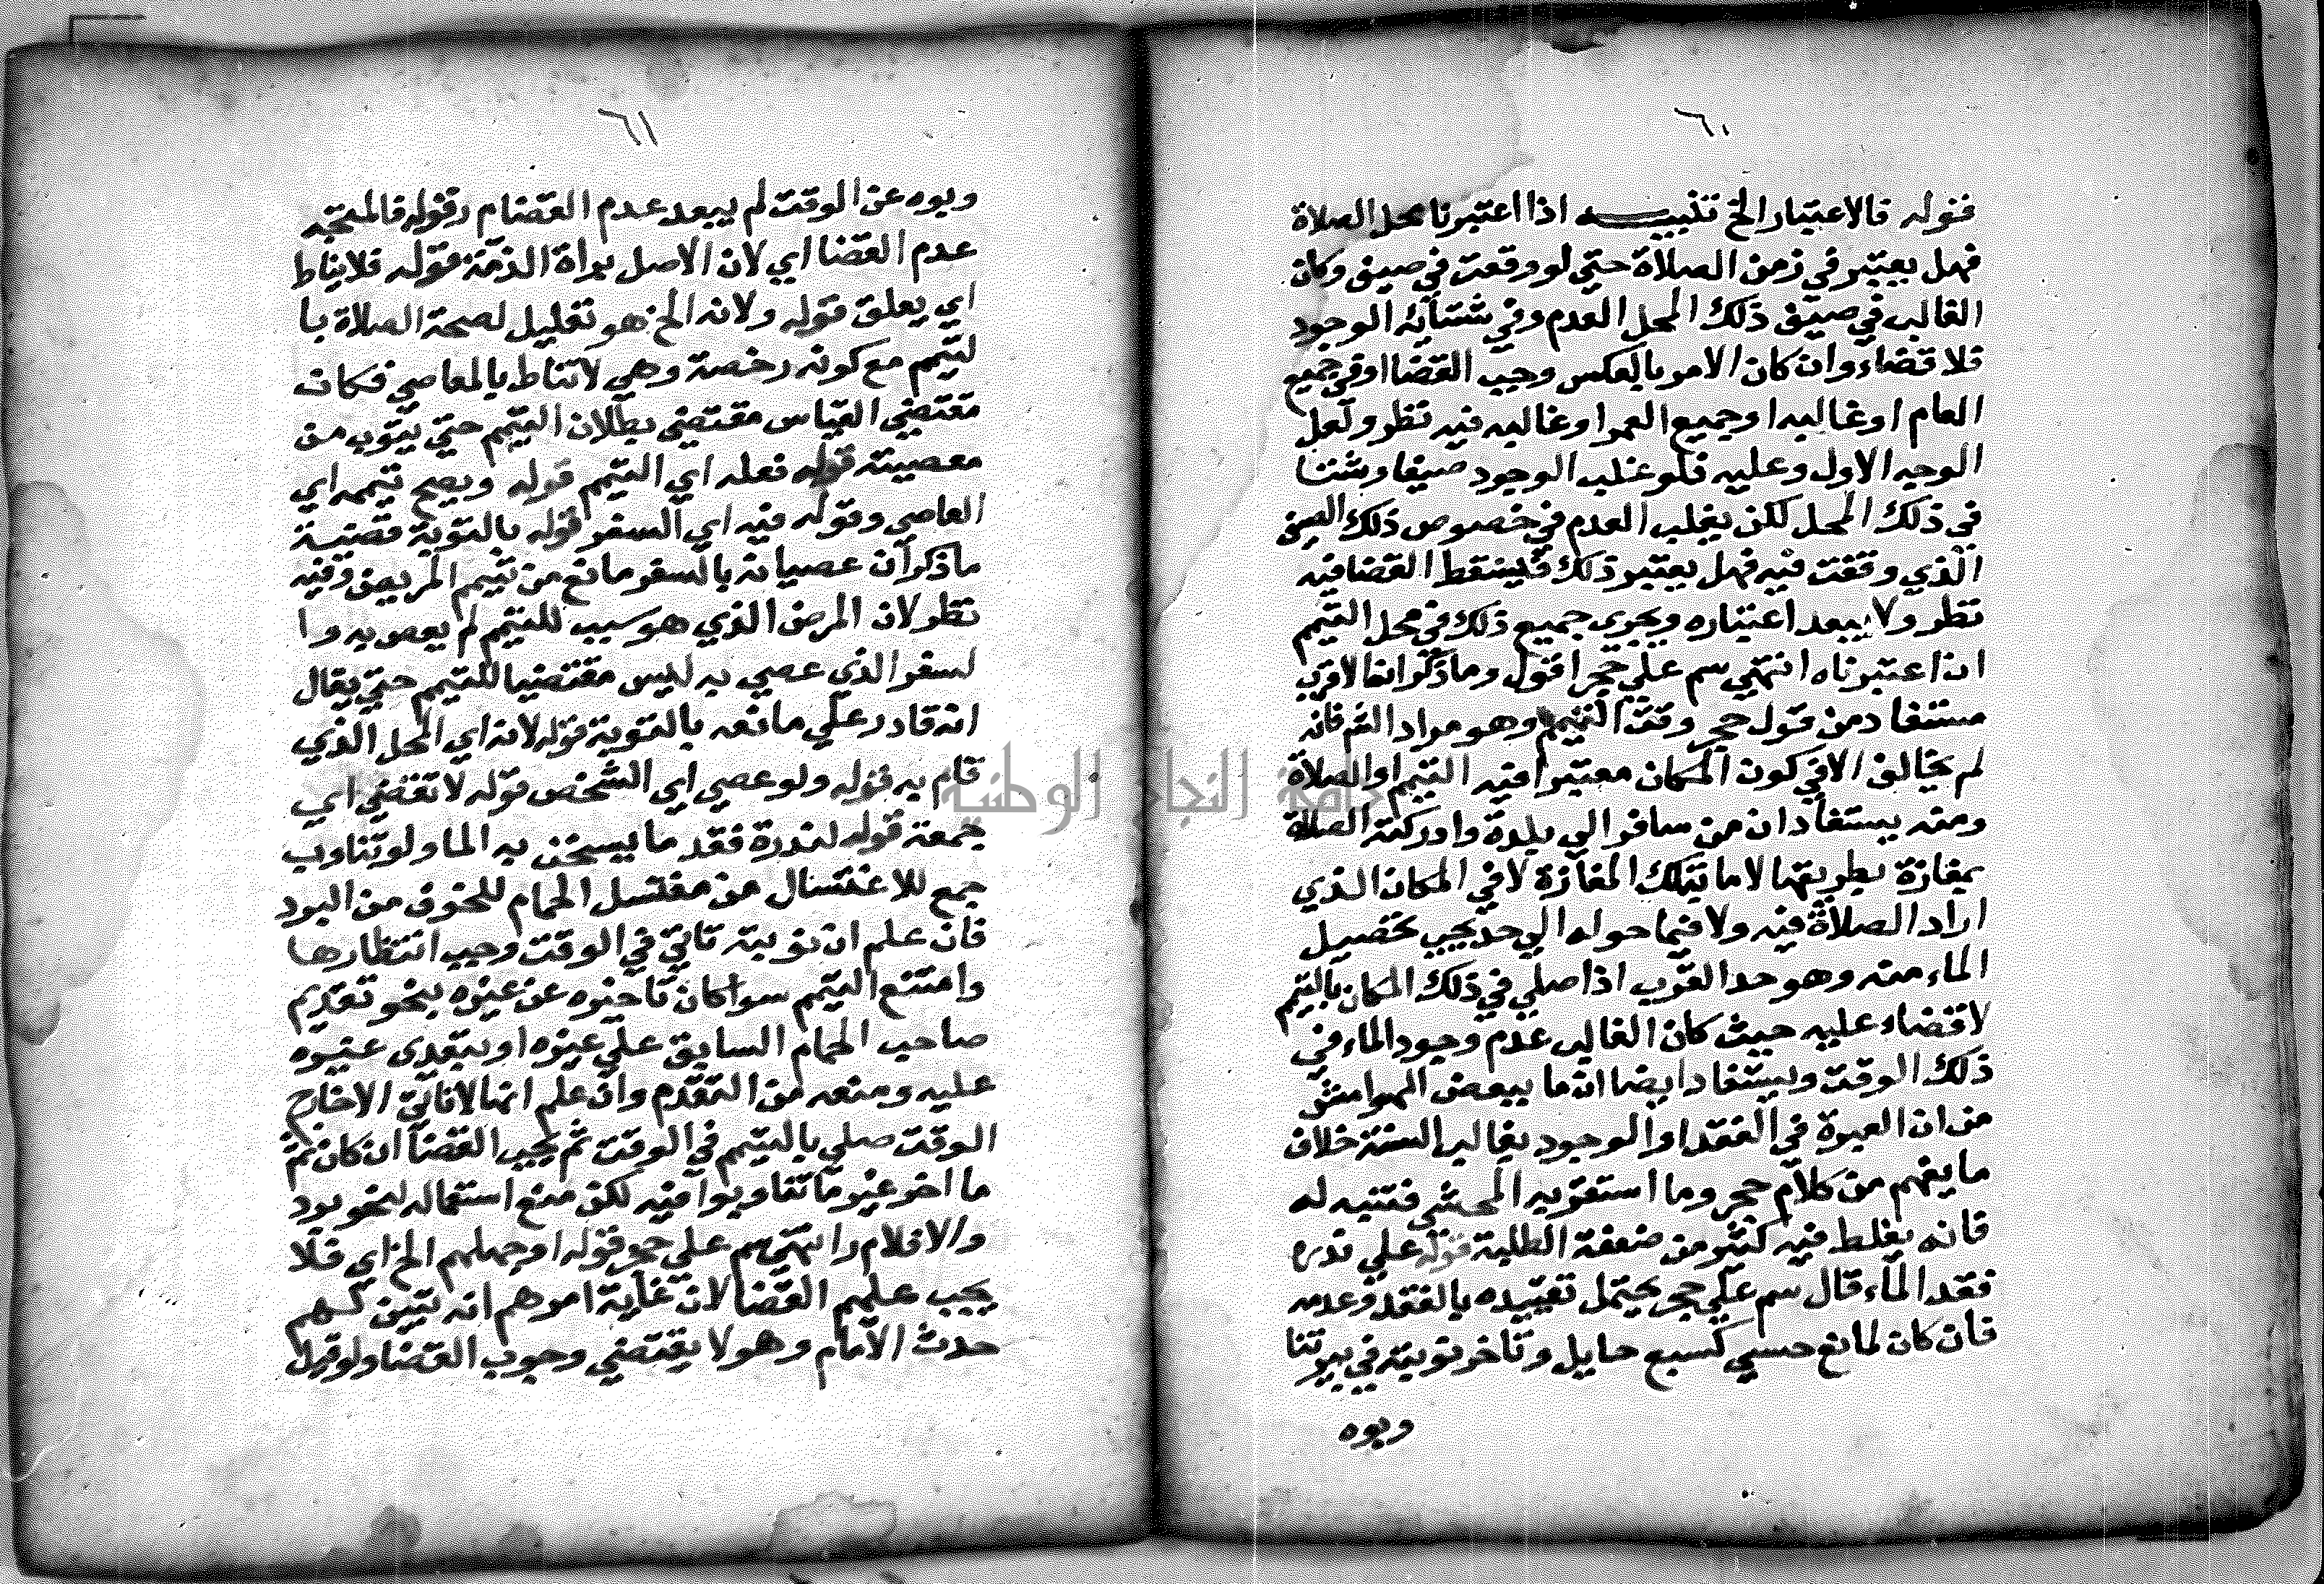 ٦٠
قوله فالاعتبار الخ تنبيه اذا اعتبرنا محل الصلاة
فهل يعتبر في زمن الصلاة حتي لو وقعت في صيف وكان
الغالب في صيف ذلك المحل العدم وفي شتائه الوجود
فلا قضاء وان كان الامر بالعكس وجب القضا او في جميع
العام او غالبه او جميع العمر او غالبه فيه نظر ولعل
الوجه الاول وعليه فلو غلب الوجود صيفا وشتا
في ذلك المحل لكن يغلب العدم في خصوص ذلك الصيف
الذي وقعت فيه فهل يعتبر ذلك فيسقط القضا فيه
نظر ولا يبعد اعتباره ويجري جميع ذلك في محل التيمم
ان اعتبرناه انتهي سم علي حجر اقول وما ذكر انه الاقرب
مستفاد من قول حجر وقت التيمم وهو مراد الشر فانه
لم يخالف الا في كون المكان معتبرا فيه التيمم او الصلاة
ومنه يستفاد ان من سافر الي بلدة وادركته الصلاة
بمفازة بطريقها لا ما بتلك المفازة لا في المكان الذي
اراد الصلاة فيه ولا فيما حوله الي حد يجب تحصيل
الماء منه وهو حد القرب اذا صلي في ذلك المكان بالتيمم
لا قضاء عليه حيث كان الغالب عدم وجود الماء في
ذلك الوقت ويستفاد ايضا ان ما ببعض الهوامش
من ان العبرة في الفقد او الوجود بغالب السنة خلاف
ما يفهم من كلام حجر وما استقربه المحشي فتنبه له
فانه يغلط فيه كثير من ضعفة الطلبة قوله علي ندره
فقد الماء قال سم علي حجر يحتمل تقييده بالفقد وعدمه
فان كان لمانع حسي كسبع حايل وتاخر نوبته في بير تنا
وبوه
٦١
وبوه عن الوقت لم يبعد عدم القضا م ر قوله فالمتجه
عدم القضا اي لان الاصل براة الذمة قوله فلا يناط
اي يعلق قوله ولانه الخ هو تعليل لصحة الصلاة با
لتيمم مع كونه رخصة وهي لا تناط بالمعاصي فكان
مقتضي القياس مقتضي بطلان التيمم حتي يتوب من
معصيته قوله فعله اي التيمم قوله ويصح تيممه اي
العاصي وقوله فيه اي السفر قوله بالتوبة قضية
ما ذكر ان عصيانه بالسفر مانع من تيمم المريض وفيه
نظر لان المرض الذي هو سبب للتيمم لم يعص به وا
لسفر الذي عصي به ليس مقتضيا للتيمم حتي يقال
انه قادر علي مانعه بالتوبة قوله لانه اي المحل الذي
قام به قوله ولو عصي اي الشخص قوله لا تقضي اي
جمعة قوله لندرة فقد ما يسخن به الما ولو تناوب
جمع للاغتسال من مغتسل الحمام للخوف من البرد
فان علم ان نوبته تاتي في الوقت وجب انتظارها
وامتنع التيمم سوا كان تاخيره عن غيره بنحو تقديم
صاحب الحمام السابق علي غيره او بتعدي غيره
عليه ومنعه من التقدم وان علم انها لا تاتي الا خارج
الوقت صلي بالتيمم في الوقت ثم يجب القضا ان كان ثم
ما اخر غير ما تناوبوا فيه لكن منع استعماله لنحو برد
والا فلا م ر انتهي سم علي حجر قوله او جهلهم الخ اي فلا
يجب عليهم القضا لان غاية امرهم انه تبين لهم
حدث الامام وهو لا يقتضي وجوب القضا ولو قيل
جامعة النجاح الوطنية